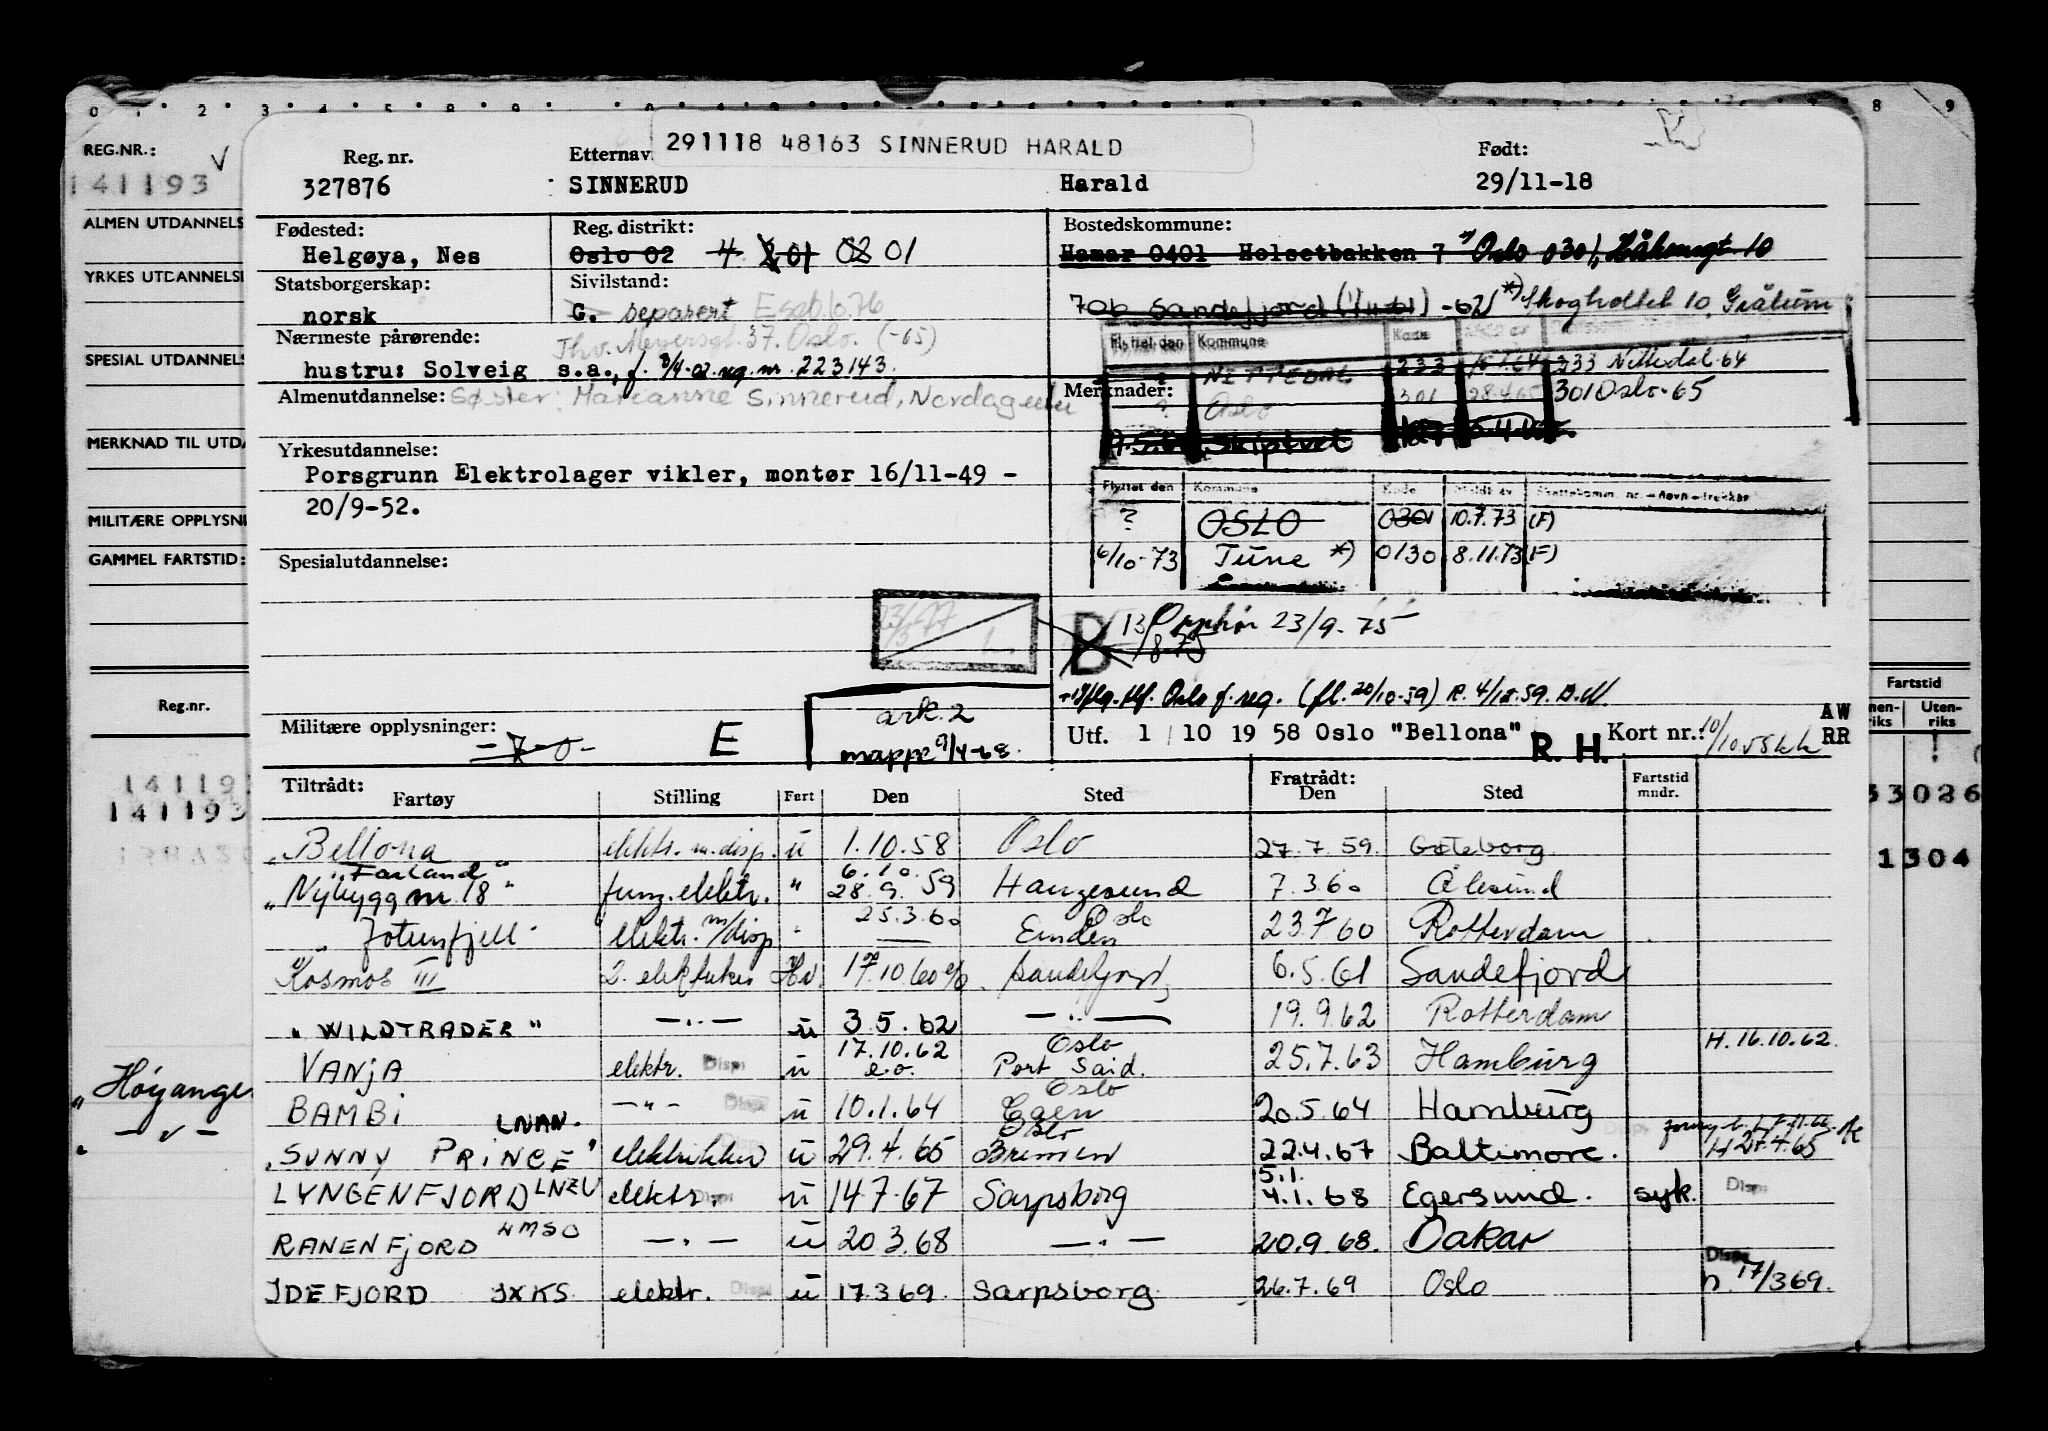 REG.NR.:
141193
ALMEN UTDANNELS
YRKES UTDANNELSE
SPESIAL UTDANNELS
MERKNAD TIL UTDA
MILITÆRE OPPLYSNI
GAMMEL FARTSTID:
Reg.nr.
141193
141193
„Høyange
291118 48163 SINNERUD HARALD
Reg. nr. Etternav Født:
327876 SINNERUD Harald 29/11-18
Fødested: Reg. distrikt: Bostedskommune:
Helgøya, Nes Oslo 02 4 01 02 01 Hamar 0401 Holsetbakken 7 Oslo 0301, 10
Statsborgerskap: Sivilstand:
norsk G. separert E 706 Sandefjord -62 *) Skogholtet 10, Grålum
Nærmeste pårørende: Thv. Meyersgt. 37. Oslo. (-65)
hustru: Solveig s.a., f. reg. nr. 223143.
Flyttet den Kommune Kode
NITTEDAL 233 233 Nittedal-64
Almenutdannelse: Søster: Marianne Sinnerud, Merknader: ? Oslo 301 28465 301 Oslo-65
Skiptvet
Yrkesutdannelse:
Porsgrunn Elektrolager vikler, montør 16/11-49 -
20/9-52.
Flyttet den Kommune Kode Meldt av
? OSLO 0301 10.7.73 (F)
6/10-73 Tune *) 0130 8.11.73 (F)
Spesialutdannelse:
B 13/8-75 Opphør 23/9-75
Oslo f. reg. (fl. 20/10-59) R. 4/12.59. B.M.
Militære opplysninger: E ark. 2
mappe 9/4-68.
Utf. 1/10 1958 Oslo "Bellona" R. H. Kort nr.: 10/10.58 AW RR
Tiltrådt: Fratrådt:
Fartøy Stilling Fart Den Sted Den Sted Fartstid mndr.
„Bellona elektr. m.disp. u 1.10.58 Oslo 27.7.59. Göteborg
„Farland"
„Nybygg nr. 18" elektr. " 6.10. 28.9.59 Haugesund 7.3.60 Ålesund
„Jotunfjell" elektr. m/disp 25.3.60 Oslo Emden 23.7 60 Rotterdam
Kosmos III 2. elektriker Hv. 17.10.60 Sandefjord 6.5.61 Sandefjord
" WILDTRADER " —„— u 3.5.62 —„— 19.9.62 Rotterdam
VANJA elektr. Disp u 17.10.62 e.o. Oslo Port Said. 25.7.63 Hamburg H. 16.10.62.
BAMBI —„— Disp u 10.1.64 Oslo 20.5.64 Hamburg
LNAN.
„SUNNY PRINCE" elektriker u 29.4.65 Oslo Bremen 22.4.67 Baltimore.
LYNGENFJORD LNZU elektr. Disp u 14.7.67 Sarpsborg 5.1. 4.1.68 Egersund. syk. Disp
RANENFJORD —„— u 20 3.68 —„— 20.9.68. Dakar
IDEFJORD JXKS elektr. Disp u 17 3 69. Sarpsborg 26.7.69 Oslo Disp h. 17/369.
Fartstid
Uten-riks
33026
1304